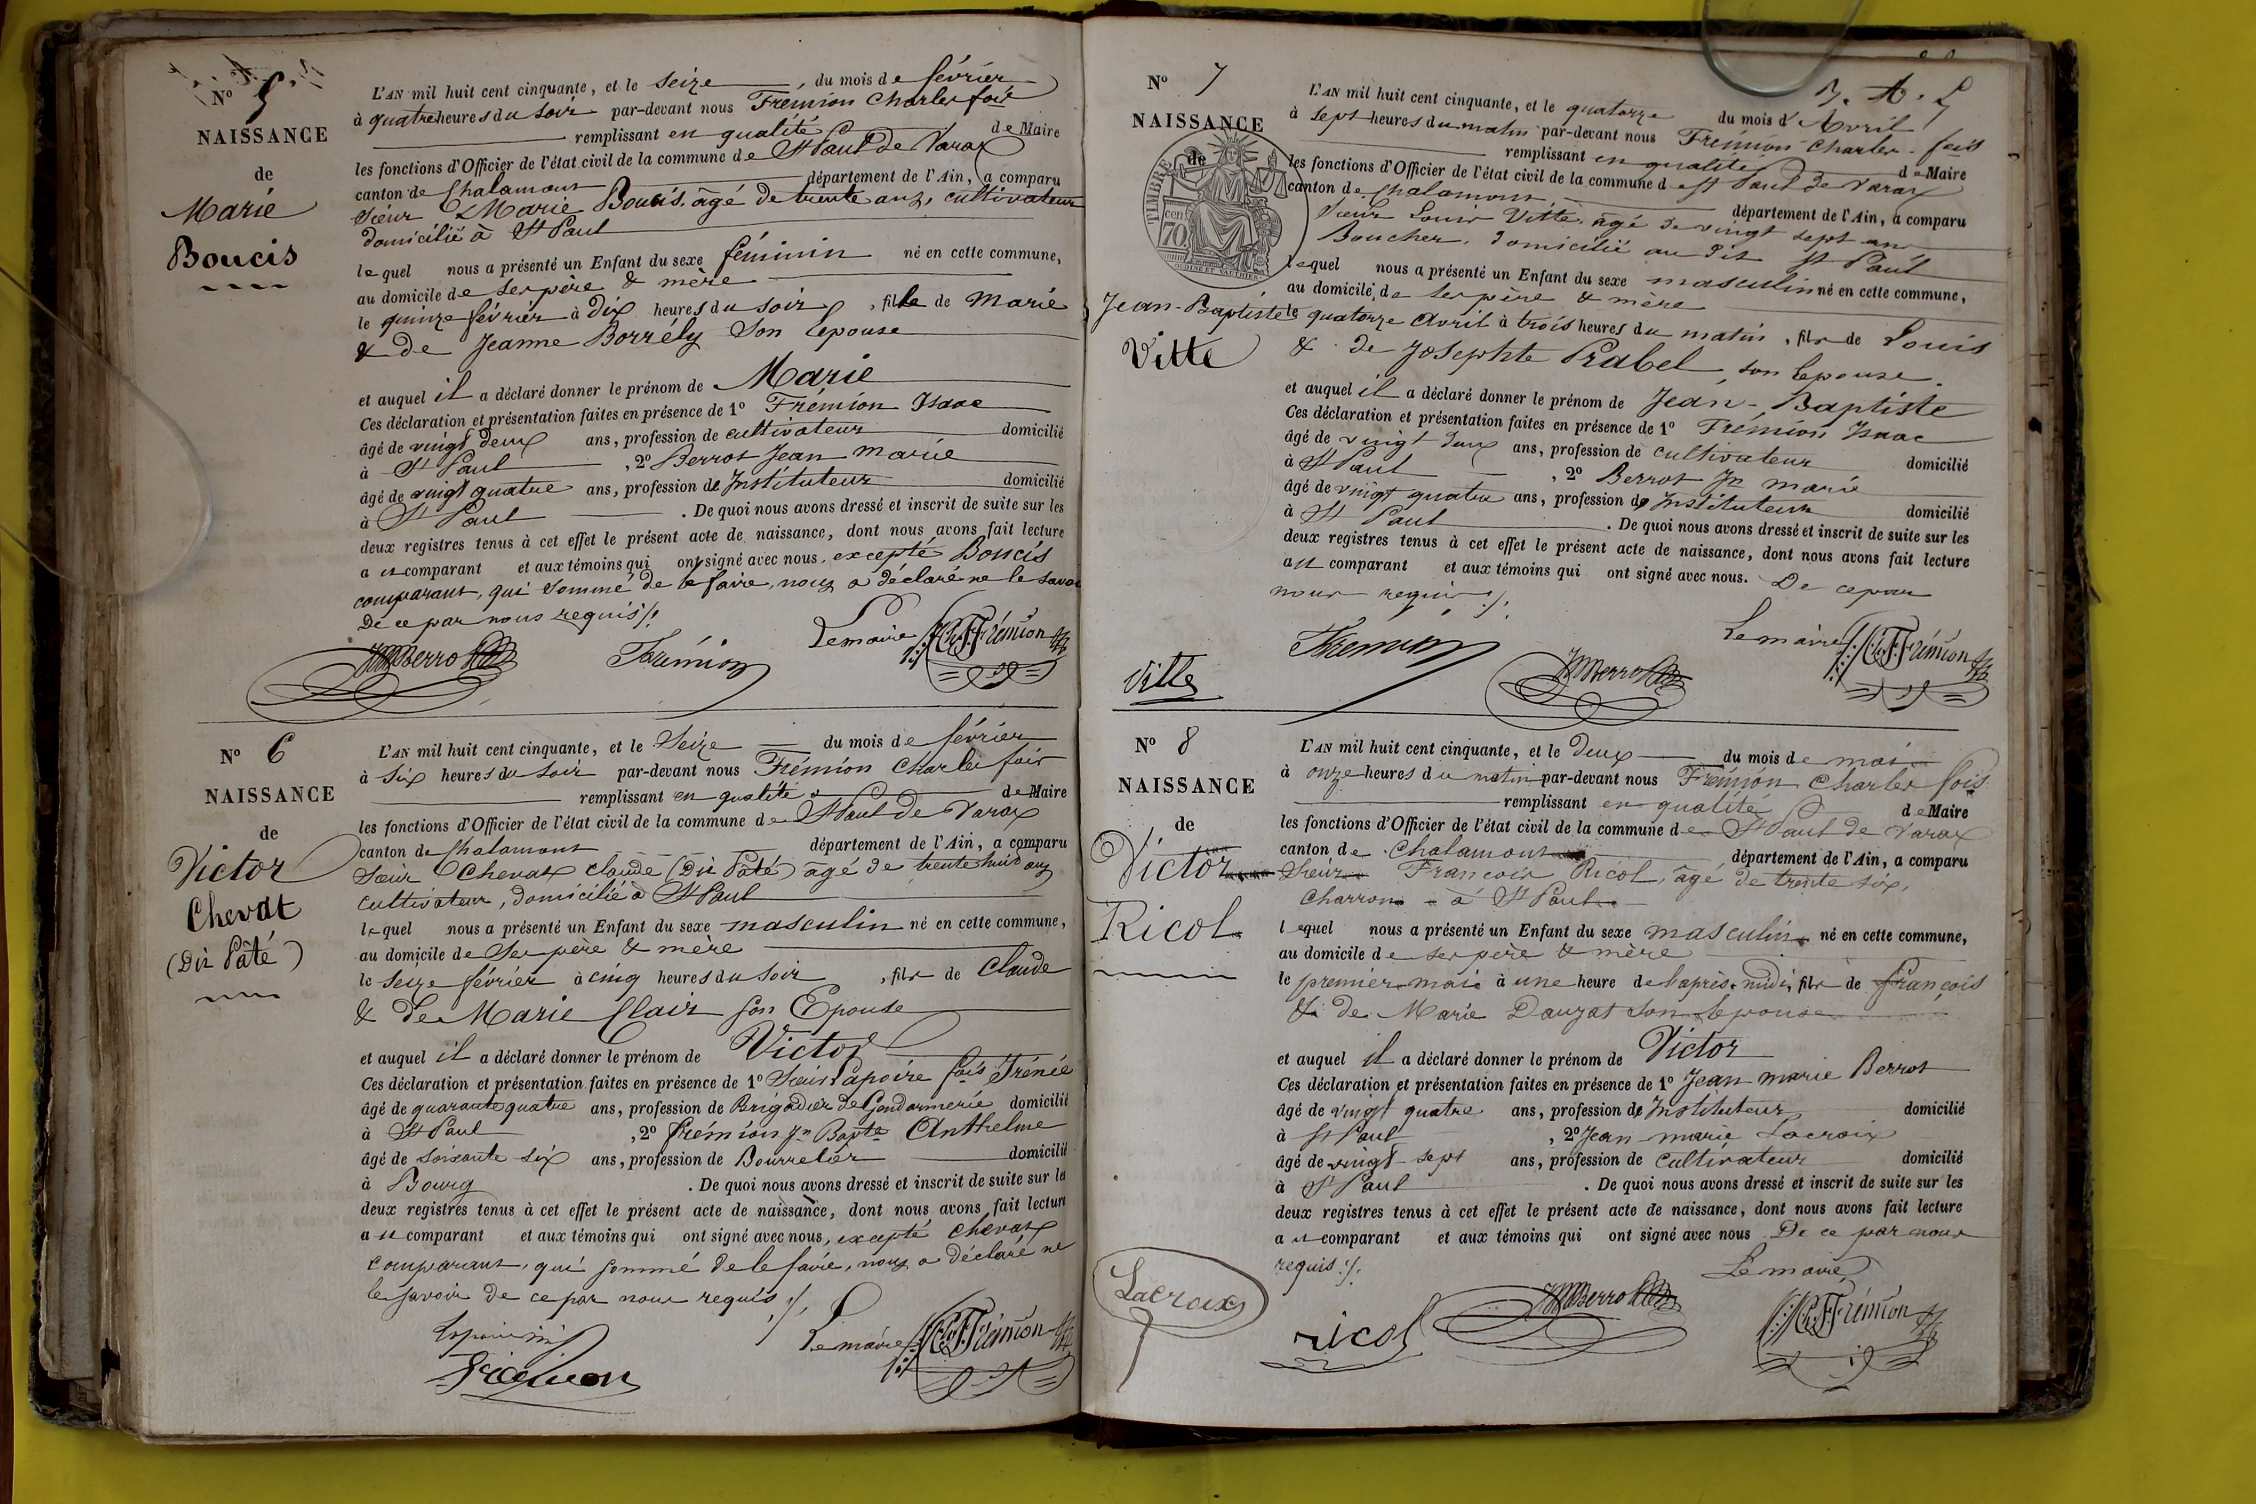 N° 5
NAISSANCE
de
Marie
Boucis
L'AN mil huit cent cinquante, et le Seize du mois de février
à quatre heures du soir par-devant nous Frémion Charles fois
remplissant en qualité de Maire
les fonctions d'Officier de l'état civil de la commune de St Paul de Varax
canton de Chalamont département de l'Ain, a comparu
Sieur Marie Boucis, âgé de trente ans, cultivateur
domicilié à St Paul
lequel nous a présenté un Enfant du sexe féminin né en cette commune,
au domicile de ses père & mère
le quinze février à dix heures du soir, fille de Marie
& de Jeanne Borrély Son Epouse
et auquel il a déclaré donner le prénom de Marie
Ces déclaration et présentation faites en présence de 1° Frémion Isaac
âgé de vingt deux ans, profession de cultivateur domicilié
à St Paul, 2° Berrot Jean marie
âgé de vingt quatre ans, profession de Instituteur domicilié
à St Paul. De quoi nous avons dressé et inscrit de suite sur les
deux registres tenus à cet effet le présent acte de naissance, dont nous avons fait lecture
au comparant et aux témoins qui ont signé avec nous, excepté Boucis
comparant, qui sommé de le faire, nous a déclaré ne le savoir
De ce par nous requis ./.
JMBerrot Frémion Le maire Ch. F. Frémion
N° 6
NAISSANCE
de
Victor
Chevat
(Dit Pâté)
L'AN mil huit cent cinquante, et le Seize du mois de février
à six heures du soir par-devant nous Frémion Charles fois
remplissant en qualité de Maire
les fonctions d'Officier de l'état civil de la commune de St Paul de Varax
canton de Chalamont département de l'Ain, a comparu
Sieur Chevat Claude (Dit Pâté) âgé de trente huit ans
cultivateur, domicilié à St Paul
lequel nous a présenté un Enfant du sexe masculin né en cette commune,
au domicile de Ses père & mère
le seize février à cinq heures du soir, fils de Claude
& de Marie Clair son Epouse
et auquel il a déclaré donner le prénom de Victor
Ces déclaration et présentation faites en présence de 1° Sieur Lapoire fois Irénée
âgé de quarante quatre ans, profession de Brigadier de Gendarmerie domicilié
à St Paul, 2° frémion Jn Bapte Anthelme
âgé de soixante six ans, profession de Bourrelier domicilié
à Bourg. De quoi nous avons dressé et inscrit de suite sur les
deux registres tenus à cet effet le présent acte de naissance, dont nous avons fait lecture
au comparant et aux témoins qui ont signé avec nous, excepté Chevat
comparant, qui sommé de le faire, nous a déclaré ne
le savoir de ce par nous requis ./.
Le maire Ch. F. Frémion
frémion
N° 7
7. A. L
NAISSANCE
de
TIMBRE
70 cent
Jean-Baptiste
Vitte
L'AN mil huit cent cinquante, et le quatorze du mois d'Avril
à sept heures du matin par-devant nous Frémion Charles fois
remplissant en qualité de Maire
les fonctions d'Officier de l'état civil de la commune de St Paul de Varax
canton de Chalamont département de l'Ain, a comparu
Sieur Louis Vitte, âgé de vingt sept ans
Boucher, domicilié au dit St Paul
lequel nous a présenté un Enfant du sexe masculin né en cette commune,
au domicile de ses père & mère
le quatorze Avril à trois heures du matin, fils de Louis
& de Josephte Prabel, son Epouse.
et auquel il a déclaré donner le prénom de Jean-Baptiste
Ces déclaration et présentation faites en présence de 1° Frémion Isaac
âgé de vingt deux ans, profession de cultivateur domicilié
à St Paul, 2° Berrot Jn marie
âgé de vingt quatre ans, profession de Instituteur domicilié
à St Paul. De quoi nous avons dressé et inscrit de suite sur les
deux registres tenus à cet effet le présent acte de naissance, dont nous avons fait lecture
au comparant et aux témoins qui ont signé avec nous. De ce par
nous requis ./.
Vitte Fremion JMBerrot Le maire Ch. F. Frémion
N° 8
NAISSANCE
de
Victor
Ricol
L'AN mil huit cent cinquante, et le deux du mois de mai
à onze heures du matin par-devant nous Frémion Charles fois
remplissant en qualité de Maire
les fonctions d'Officier de l'état civil de la commune de St Paul de Varax
canton de Chalamont département de l'Ain, a comparu
Sieur François Ricol, âgé de trente six,
Charron à St Paul
lequel nous a présenté un Enfant du sexe masculin né en cette commune,
au domicile de ses père & mère
le premier mai à une heure de l'après-midi, fils de françois
& de Marie Dauzat son Epouse
et auquel il a déclaré donner le prénom de Victor
Ces déclaration et présentation faites en présence de 1° Jean marie Berrot
âgé de vingt quatre ans, profession de Instituteur domicilié
à St Paul, 2° Jean marie Lacroix
âgé de vingt sept ans, profession de cultivateur domicilié
à St Paul. De quoi nous avons dressé et inscrit de suite sur les
deux registres tenus à cet effet le présent acte de naissance, dont nous avons fait lecture
au comparant et aux témoins qui ont signé avec nous De ce par nous
requis ./.
Lacroix ricol JMBerrot Le maire Ch. F. Frémion